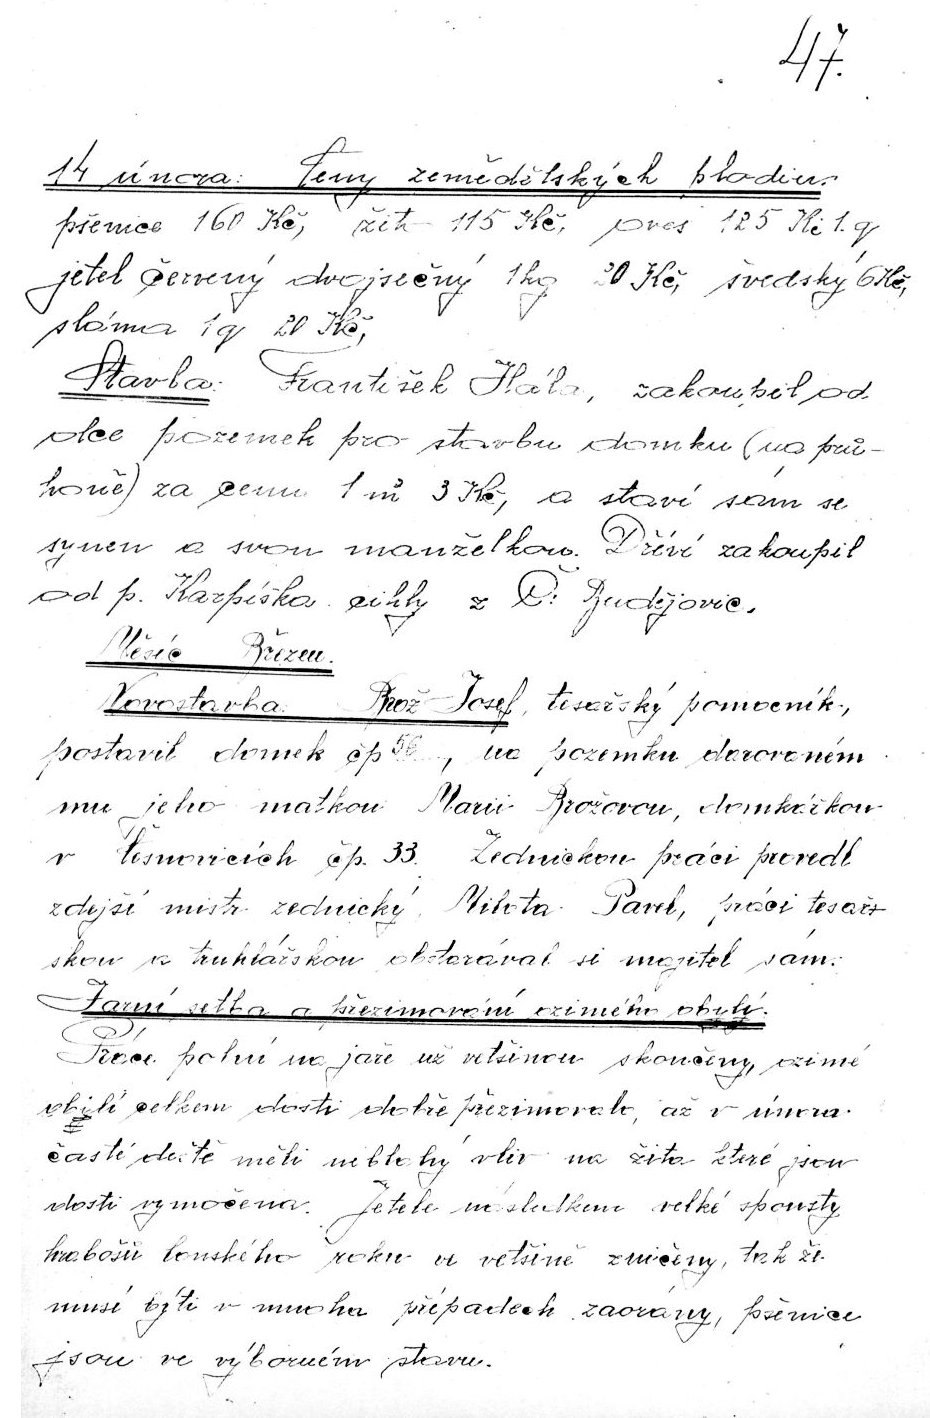 47.
14 února: Ceny zemědělských plodin.
pšenice 160 Kč, žito 115 Kč, oves 125 Kč 1 q
jetel červený dvojsečný 1 kg 20 Kč, švedský 6 Kč,
sláma 1 q 20 Kč,
Stavba: František Hála, zakoupil od
otce pozemek pro stavbu domku (na prů-
honě) za cenu 1 m² 3 Kč, a staví sám se
synem a svou manželkou. Dříví zakoupil
od p. Karpíška cihly z Č. Budějovic.
Měsíc Březen.
Novostavba. Brož Josef, tesařský pomocník,
postavil domek čp 56, na pozemku darovaném
mu jeho matkou Marií Brožovou, domkářkou
v Těšnovicích čp. 33. Zednickou práci provedl
zdejší mistr zednický Milota Pavel, práci tesař-
skou a truhlářskou obstarával si majitel sám.
Jarní setba a přezimování ozimého obylí.
Práce polní na jaře už vetšinou skončeny, ozimé
obylí celkem dosti dobře přezimovalo, až v února
časté deště měli neblahý vliv na žita které jsou
dosti vymočena. Jetele následkem velké spousty
hrabošů lonského roku ve vetšině zničeny, tak že
musí býti v mnoha případech zaorány, pšenice
jsou ve výborném stavu.